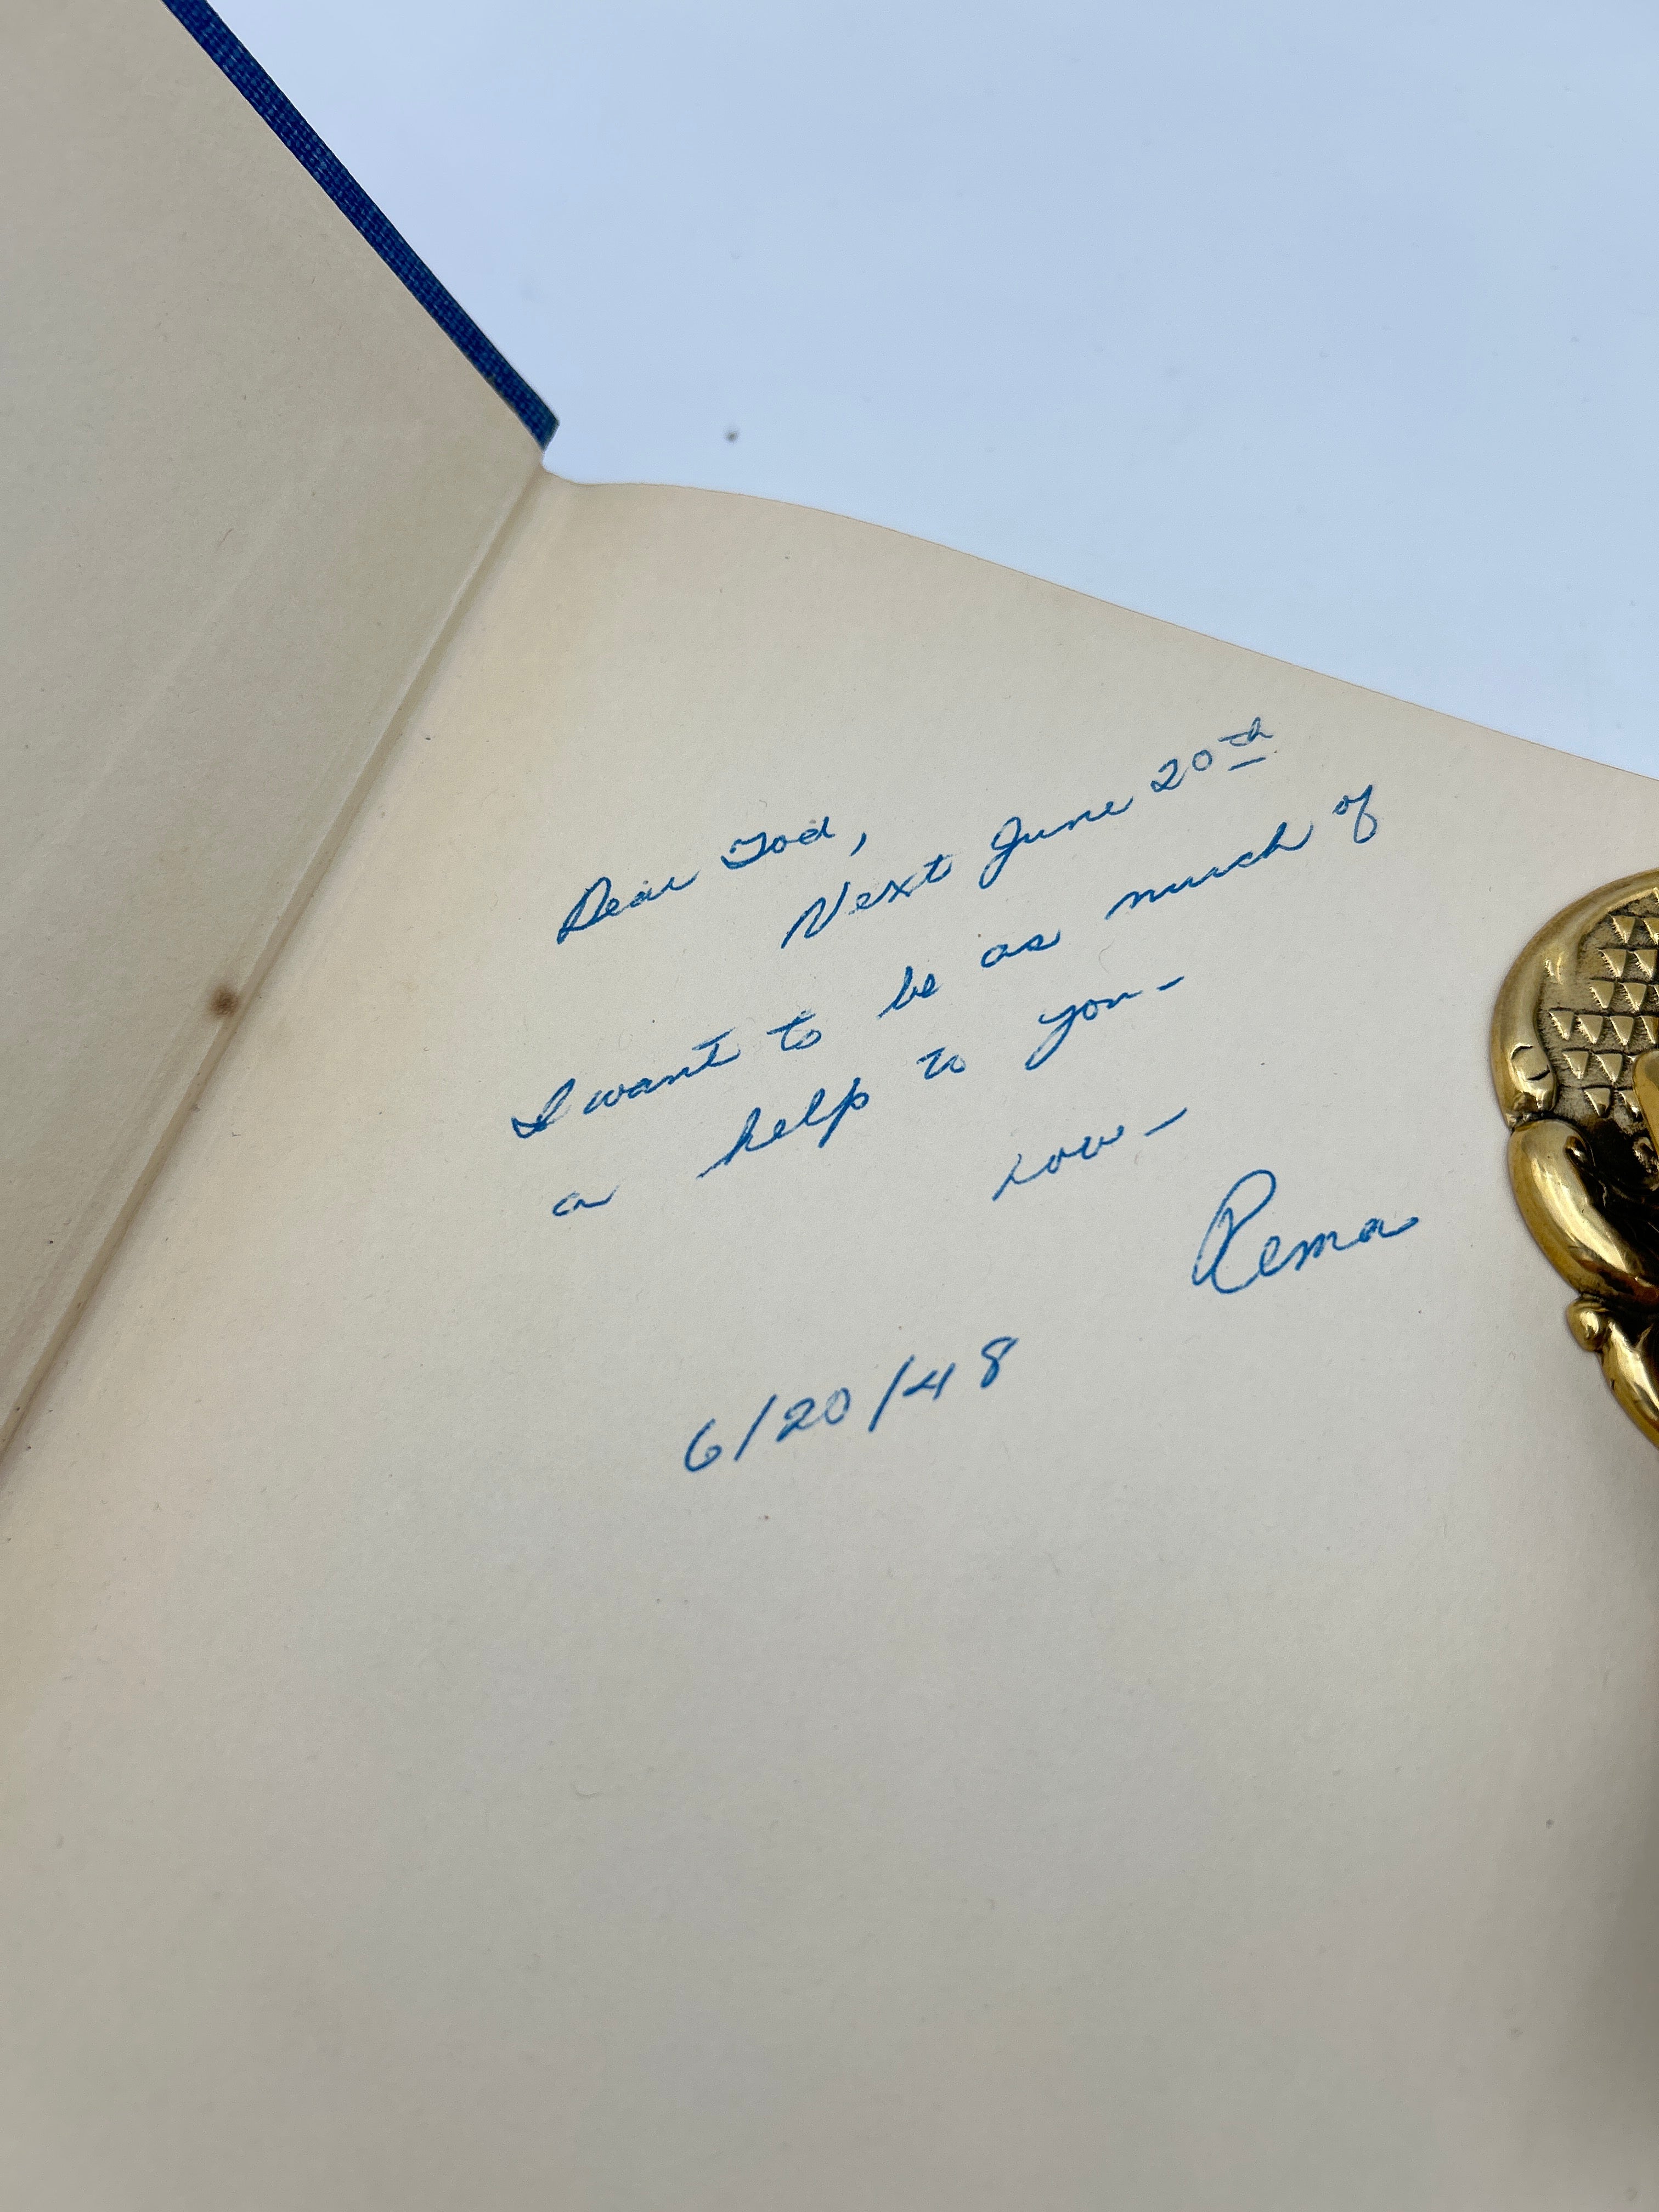 Dear Tod,
Next June 20th
I want to be as much of
a help to you -
Love -
Rema
6/20/48